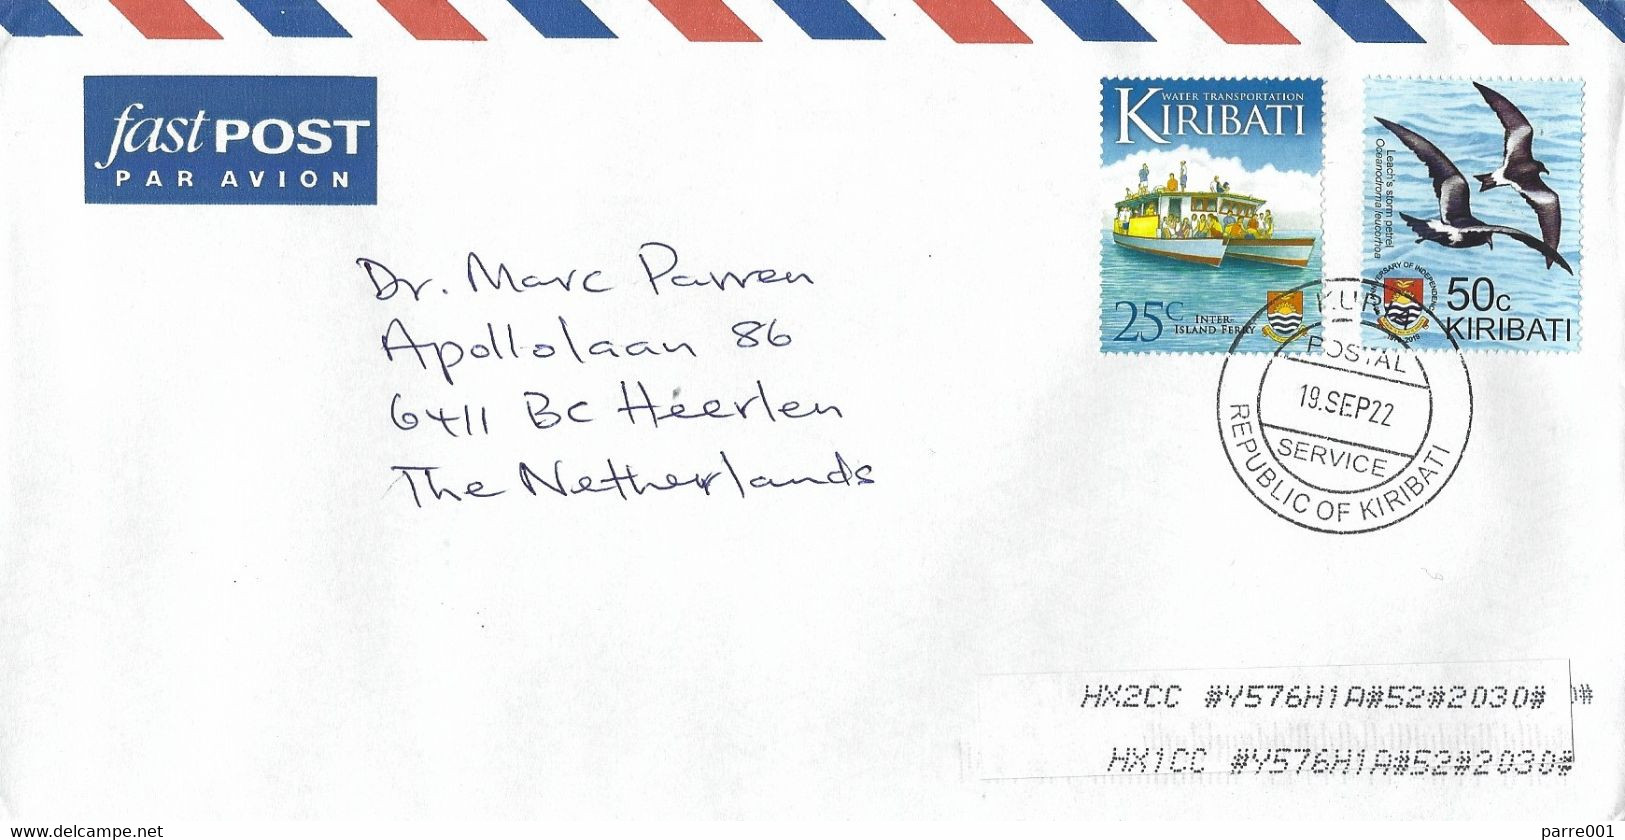 fast POST
PAR AVION
WATER TRANSPORTATION
KIRIBATI
25c
INTER-
ISLAND FERRY
Leach's storm petrel
Oceanodroma leucorhoa
ANNIVERSARY OF INDEPENDENCE
50c
KIRIBATI
Dr. Marc Parren
Apollolaan 86
6411 BC Heerlen
The Netherlands
POSTAL
19.SEP22
SERVICE
REPUBLIC OF KIRIBATI
HX2CC #Y576H1A#52#2030#
HX1CC #Y576H1A#52#2030#
www.delcampe.net
parre001